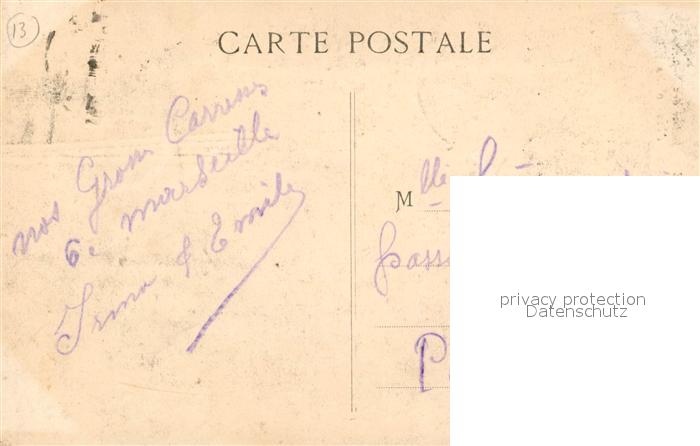 13
CARTE POSTALE
nos Gros Caresses
6e marseille
Irma & Emile
Mlle
Pass
P
privacy protection
Datenschutz